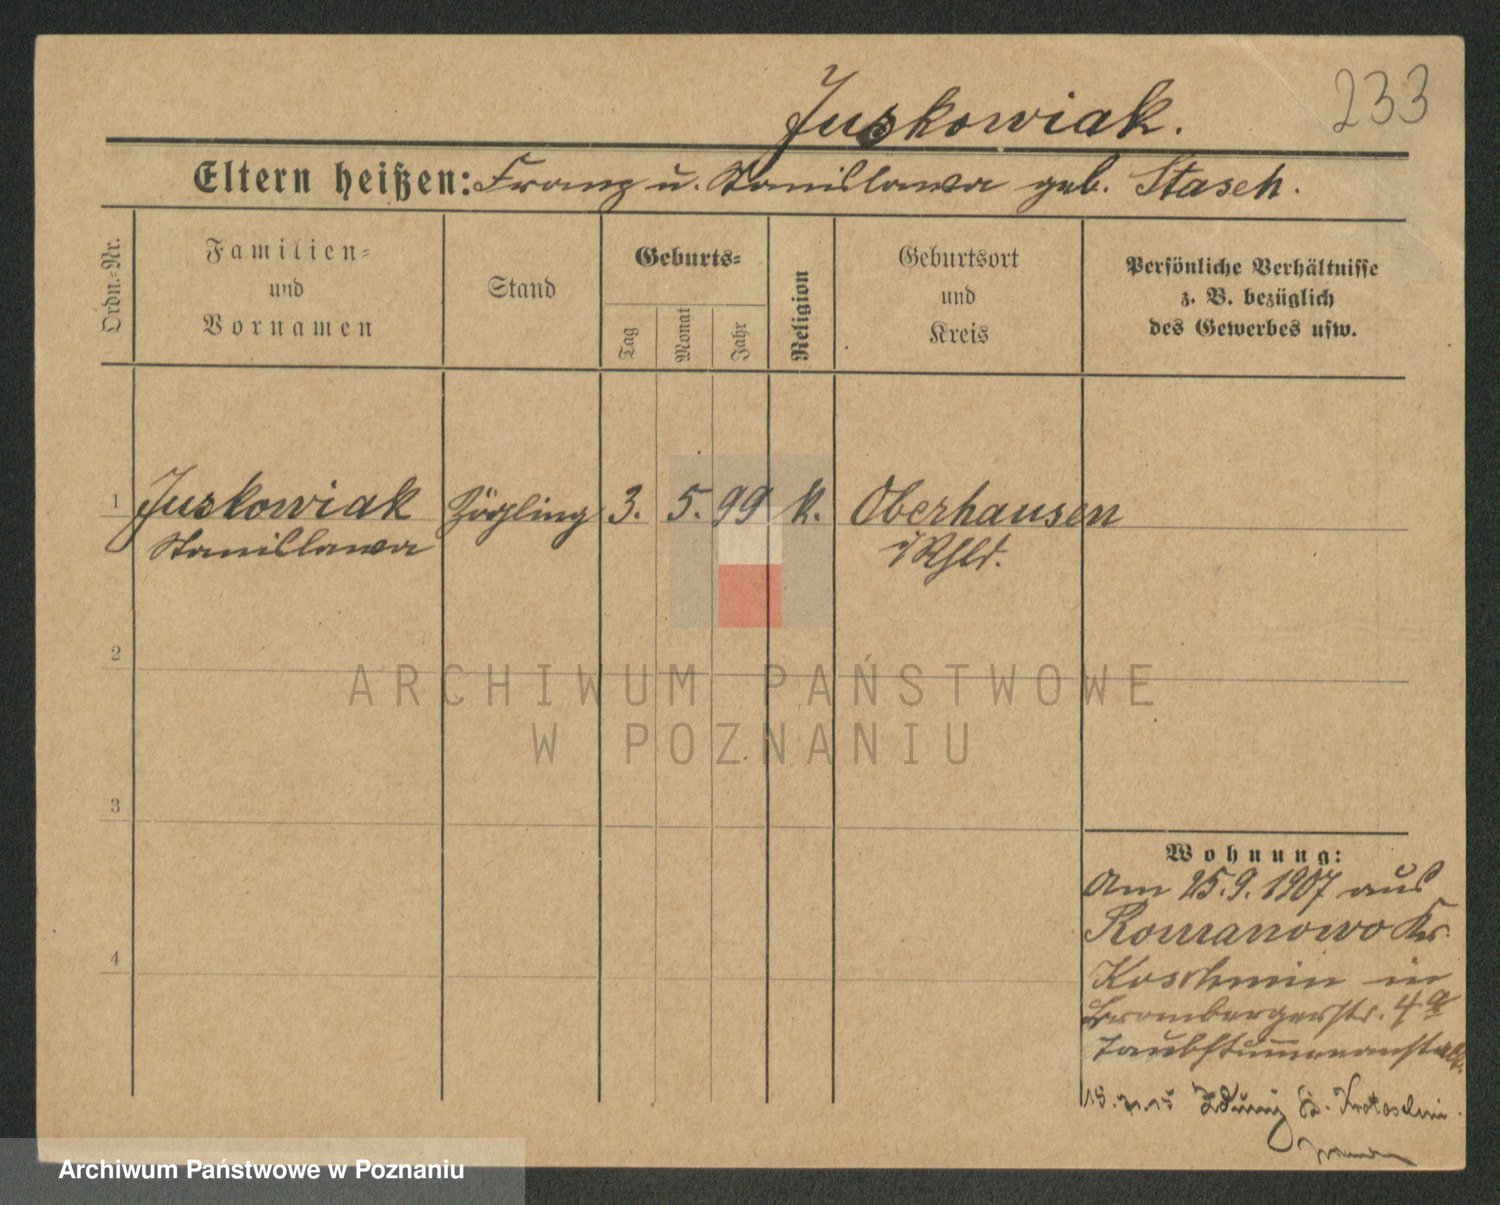 233
Juskowiak.
Eltern heißen: Franz u. Stanislawa geb. Stasch.
Ordn.-Nr.
Familien-
und
Vornamen
Stand
Geburts-
Tag
Monat
Jahr
Religion
Geburtsort
und
Kreis
Persönliche Verhältnisse
z. B. bezüglich
des Gewerbes usw.
1 Juskowiak Zögling 3. 5. 99 k. Oberhausen
Stanislawa i/Rhld.
2
3
4
ARCHIWUM PAŃSTWOWE
W POZNANIU
Wohnung:
Am 25.9.1907 aus
Romanowo Kr.
Koschmin in
Brombergerstr. 4a
Taubstummenanstalt.
Zduny Kr. Krotoschin.
Archiwum Państwowe w Poznaniu